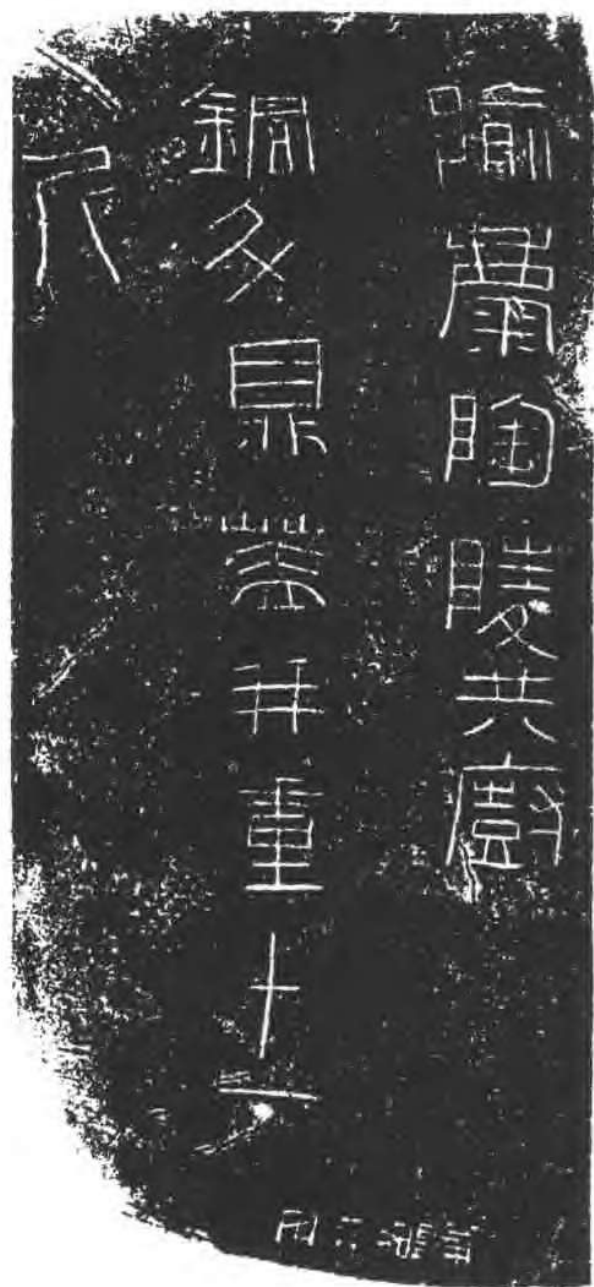 隃麋陶陵共廚
銅斗鼎蓋并重十一
斤